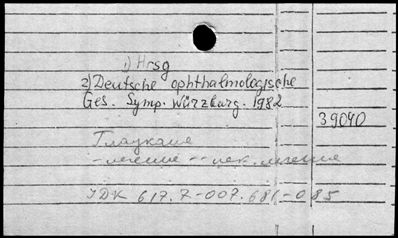 1) Hrsg
2) Deutsche ophthalmologische
Ges. Symp. Würzburg. 1982
39040
Глаукома
-лечение -- лек. лечение
УДК 617.7-007.681-085